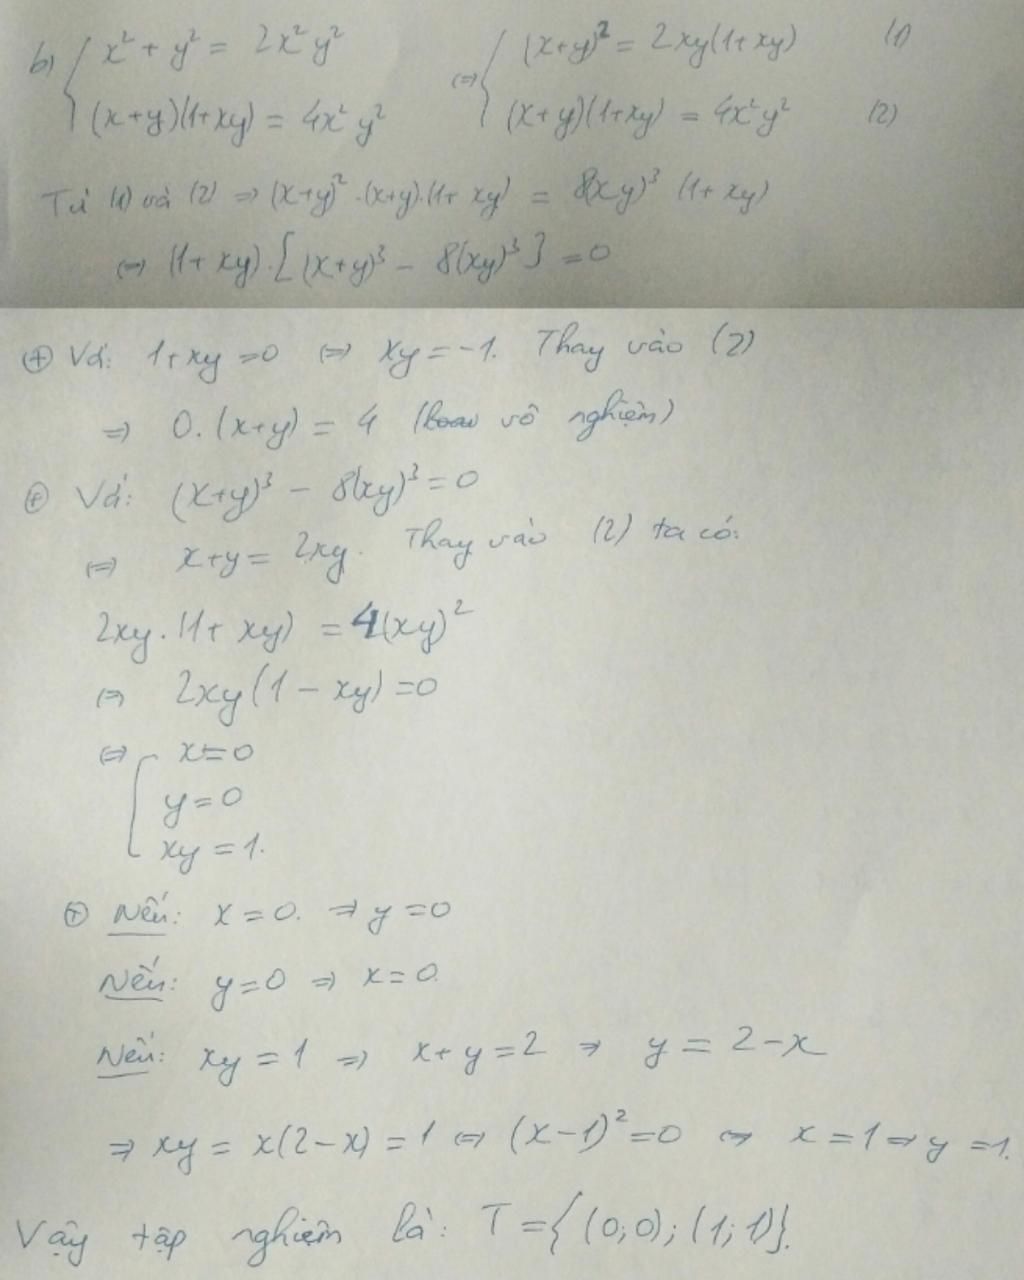 b) { x² + y² = 2x²y² ⇔ { (x+y)² = 2xy(1+xy) (1)
(x+y)(1+xy) = 4x²y² (x+y)(1+xy) = 4x²y² (2)
Từ (1) và (2) ⇒ (x+y)².(x+y).(1+xy) = 8(xy)³ (1+xy)
⇔ (1+xy).[(x+y)³ - 8(xy)³] = 0
⊕ Với: 1+xy=0 ⇔ xy=-1. Thay vào (2)
⇒ 0.(x+y) = 4 (vô nghiệm)
⊕ Với: (x+y)³ - 8(xy)³ = 0
⇔ x+y = 2xy. Thay vào (2) ta có:
2xy.(1+xy) = 4(xy)²
⇔ 2xy(1-xy)=0
⇔ [ x=0
y=0
xy=1.
⊕ Nếu: x=0. ⇒ y=0
Nếu: y=0 ⇒ x=0.
Nếu: xy=1 ⇒ x+y=2 ⇒ y=2-x
⇒ xy = x(2-x) = 1 ⇔ (x-1)²=0 ⇔ x=1 ⇒ y=1.
Vậy tập nghiệm là: T={(0;0);(1;1)}.